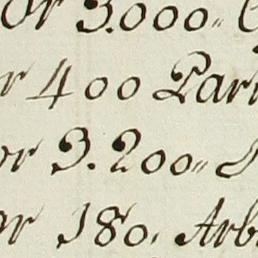 or 3.000,,
r 400 Par
or 3.200,,
or 180, Arb